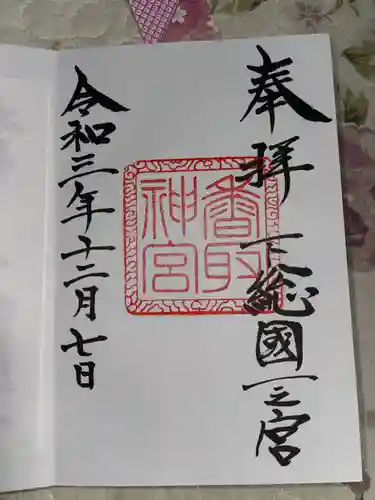 奉拝下総國一之宮
香取神宮
令和三年十二月七日